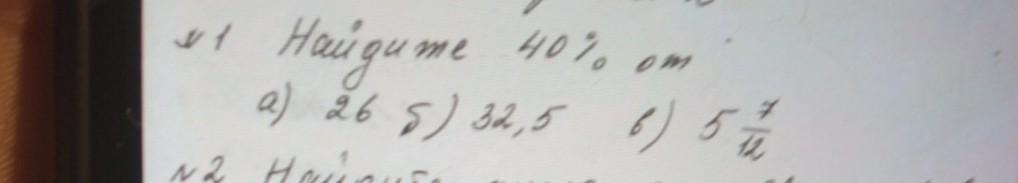 №1 Найдите 40% от
а) 26 б) 32,5 в) 5 7/12
№2 Найдите